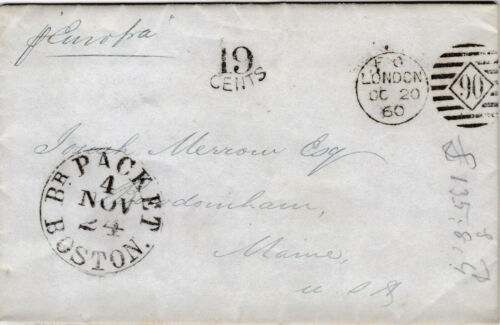 "Europa"
19
CENTS
F O
LONDON
OC 20
60
90
BR PACKET
4
NOV
24
BOSTON.
Joseph Merrow Esq
Bowdoinham,
Maine,
U.S.A
£135.8.9